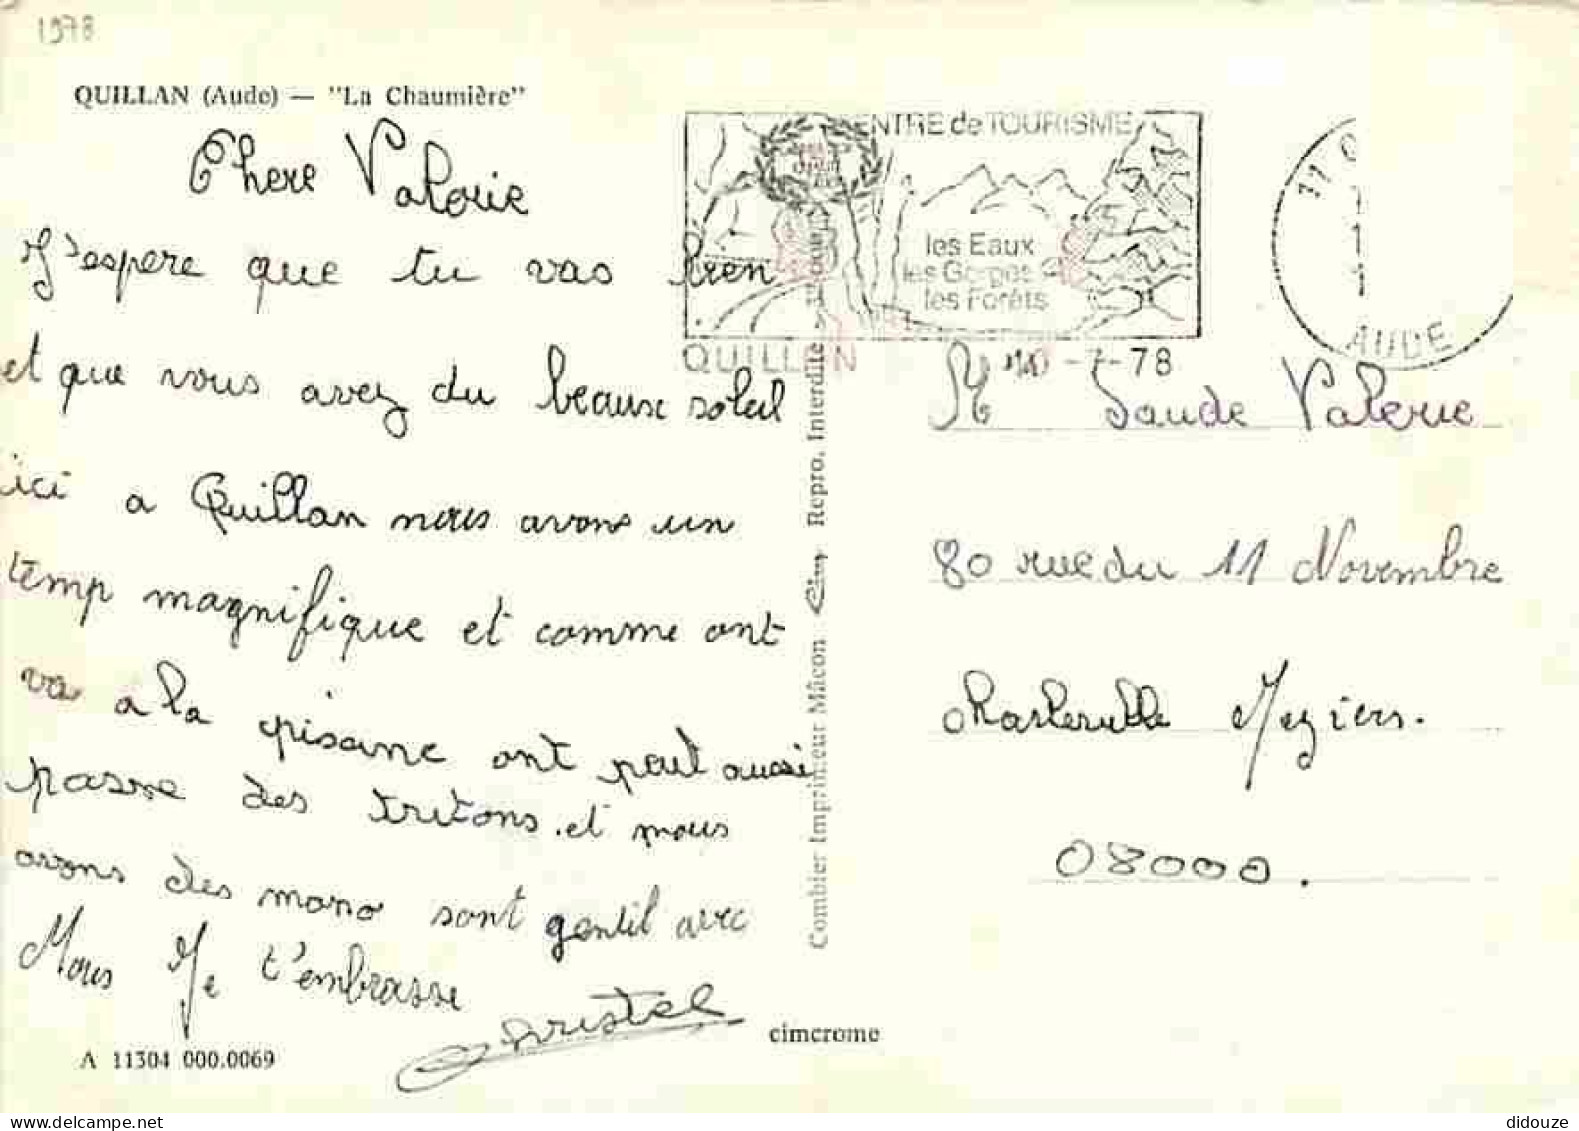 1978
QUILLAN (Aude) — "La Chaumière"
Chere Valerie
J'espere que tu vas bien
et que vous avez du beaux soleil
ici a Quillan nous avons un
temp magnifique et comme ont
va a la pisanc ont peut aussi
passe des tritons. et nous
avons des mono sont gentil avec
Nous Je t'embrasse
Christel
A 11304 000.0069
cimcrome
Combier Imprimeur Mâcon Repro. Interdite
ENTRE de TOURISME
les Eaux
les Gorges
les Forêts
QUILLAN
-7-78
11
AUDE
M Saude Valerie
80 rue du 11 Novembre
charleville Meziers.
08000.
didouze